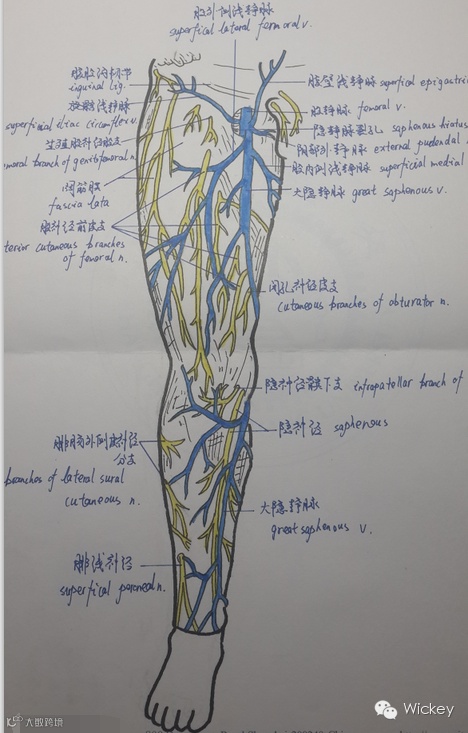 股外侧浅静脉
superfical lateral femoral v.
腹股沟韧带
inguinal lig.
旋髂浅静脉
superficial iliac circumflex v.
生殖股神经股支
moral branch of genitofemoral n.
阔筋膜
fascia lata
股神经前皮支
terior cutaneous branches
of femoral n.
腹壁浅静脉 superfical epigastric
股静脉 femoral v.
隐静脉裂孔 saphenous hiatus
阴部外静脉 external pudendal
股内侧浅静脉 superficial medial
大隐静脉 great saphenous v.
闭孔神经皮支
cutaneous branches of obturator n.
隐神经髌下支 infrapatellar branch of
隐神经 saphenous
腓肠外侧皮神经
分支
branches of lateral sural
cutaneous n.
大隐静脉
great saphenous v.
腓浅神经
superfical peroneal n.
Wickey
大数跨境